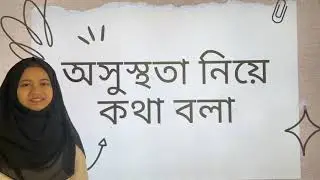 অসুস্থতা নিয়ে
কথা বলা